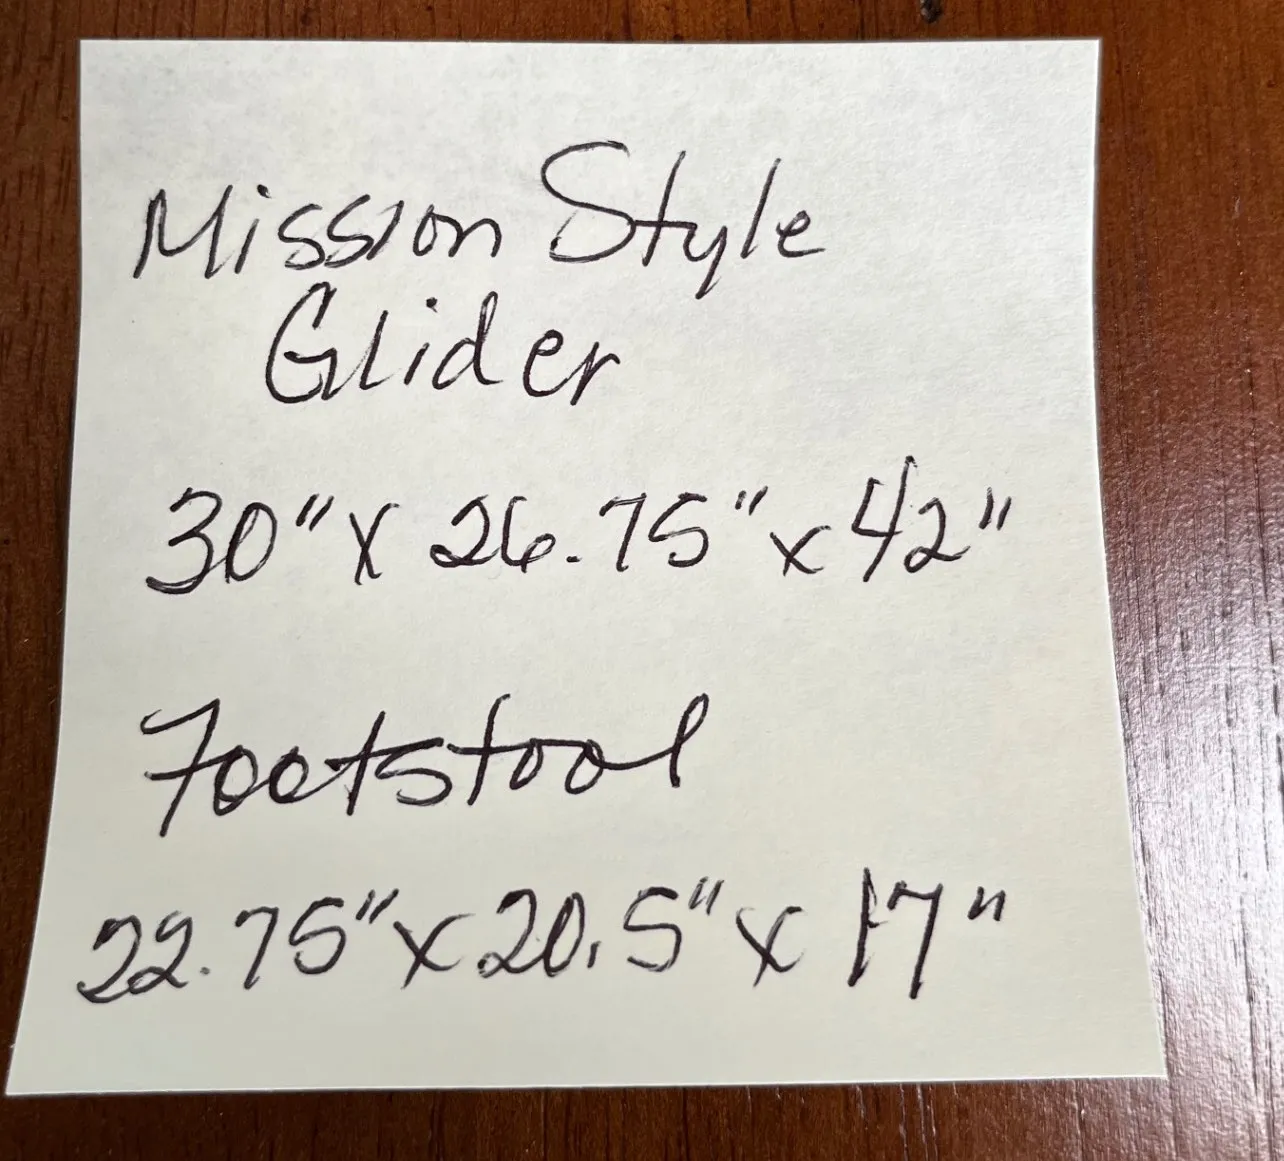 Mission Style
Glider
30" x 26.75" x 42"
Footstool
22.75" x 20.5" x 17"